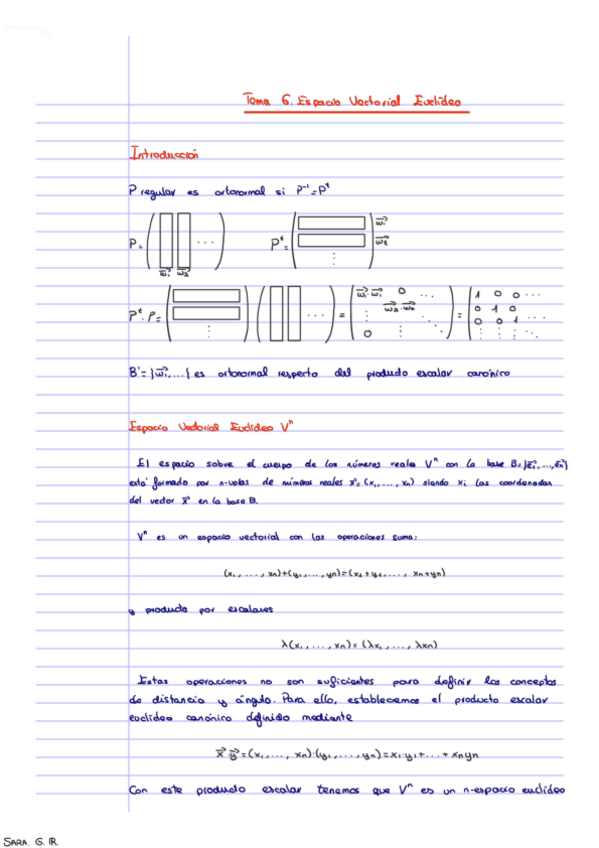 Tema 6. Espacio Vectorial Euclídeo
Introducción
P regular es ortonormal si P⁻¹=Pᵗ
P= ( ... ) w₁ w₂ Pᵗ= ( ⋮ ) w₁ w₂
Pᵗ·P= ( ⋮ ) ( ... ) = ( w₁·w₁ 0 ... w₂·w₂ ⋮ 0 ⋱ ) = ( 1 0 0 ... 0 1 0 0 0 1 ... )
B'={w₁,...} es ortonormal respecto del producto escalar canónico
Espacio Vectorial Euclídeo Vⁿ
El espacio sobre el cuerpo de los números reales Vⁿ con la base B={e₁,...,eₙ}
está formado por n-uplas de números reales x=(x₁,...,xₙ) siendo xᵢ las coordenadas
del vector x en la base B.
Vⁿ es un espacio vectorial con las operaciones suma:
(x₁,...,xₙ)+(y₁,...,yₙ)=(x₁+y₁,...,xₙ+yₙ)
y producto por escalares
λ(x₁,...,xₙ)=(λx₁,...,λxₙ)
Estas operaciones no son suficientes para definir los conceptos
de distancia y ángulo. Para ello, establecemos el producto escalar
euclídeo canónico definido mediante
x·y=(x₁,...,xₙ)·(y₁,...,yₙ)=x₁·y₁+...+xₙyₙ
Con este producto escalar tenemos que Vⁿ es un n-espacio euclídeo
SARA. G. R.